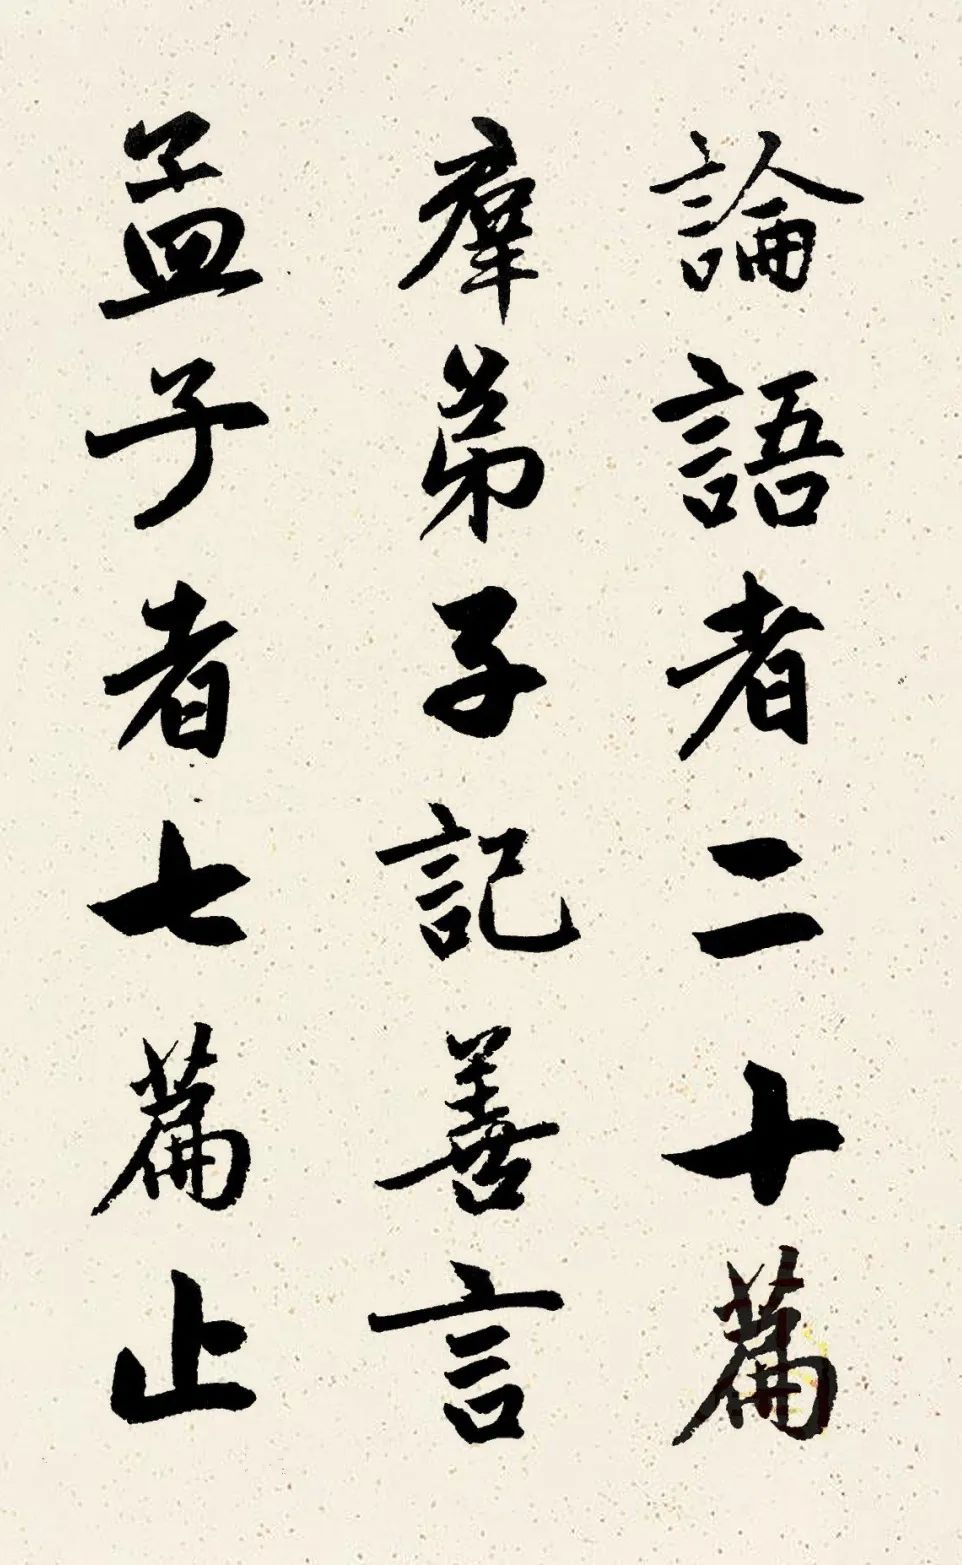 論語者二十篇
羣弟子記善言
孟子者七篇止